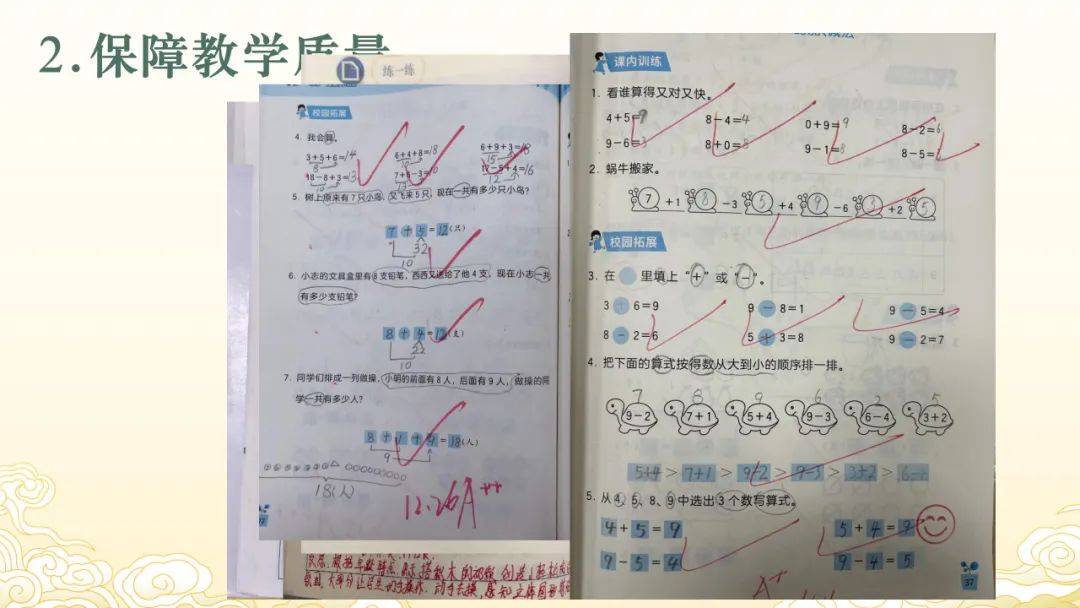 2.保障教学质量
练一练
校园拓展
4. 我会算。
3+5+6=14 6+4+8=18 6+9+3=18
8 10 15
18-8+3=13 7+6-3=10 17-5+4=16
10 13 12
5. 树上原来有7只小鸟，又飞来5只，现在一共有多少只小鸟？
7+5=12(只)
32
10
6. 小志的文具盒里有8支铅笔，西西又送给了他4支，现在小志一共
有多少支铅笔？
8+4=12(支)
22
10
7. 同学们排成一列做操，小明的前面有8人，后面有9人，做操的同
学一共有多少人？
8+1+9=18(人)
9
18(人)
12.26A++
课内训练
1. 看谁算得又对又快。
4+5=9 8-4=4 0+9=9 8-2=6
9-6=3 8+0=8 9-1=8 8-5=
2. 蜗牛搬家。
7 +1 8 -3 5 +4 9 -6 3 +2 5
校园拓展
3. 在 里填上“+”或“-”。
3+6=9 9-8=1 9-5=4
8-2=6 5+3=8 9-2=7
4. 把下面的算式按得数从大到小的顺序排一排。
7 8 9 6 2 5
9-2 7+1 5+4 9-3 6-4 3+2
5+4 > 7+1 > 9-2 > 9-3 > 3+2 > 6-
5. 从4、5、8、9中选出3个数写算式。
4+5=9 5+4=9
9-5=4 9-4=5
A+
37